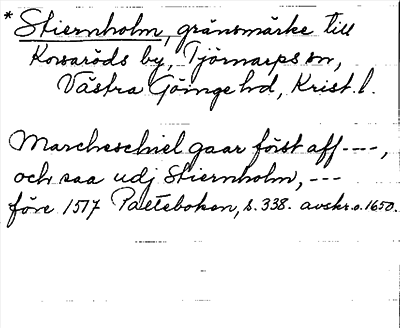 * Stiernholm, gränsmärke till
Korsaröds by, Tjörnarps sn,
Västra Göinge hd, Krist. l.
Marcheschiel gaar först aff ----,
och saa udj Stiernholm, ---
före 1517 Palteboken, s. 338. avskr. o. 1650.